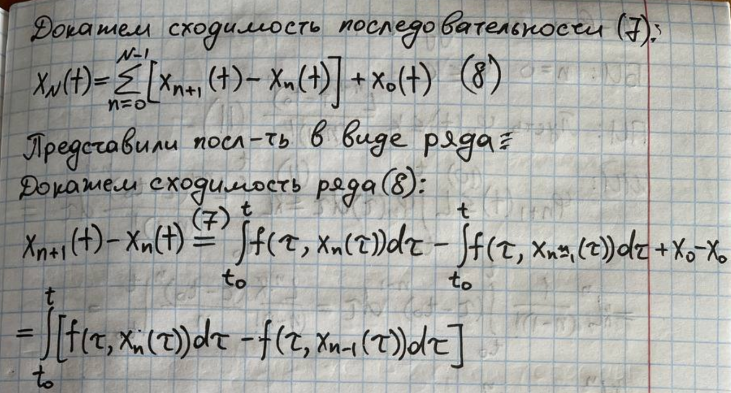 Докажем сходимость последовательности (7):
x_N(t) = ∑_{n=0}^{N-1} [x_{n+1}(t) - x_n(t)] + x_0(t) (8)
Представили посл-ть в виде ряда:
Докажем сходимость ряда (8):
x_{n+1}(t) - x_n(t) =^{(7)} ∫_{t_0}^{t} f(τ, x_n(τ))dτ - ∫_{t_0}^{t} f(τ, x_{n-1}(τ))dτ + x_0 - x_0
= ∫_{t_0}^{t} [f(τ, x_n(τ))dτ - f(τ, x_{n-1}(τ))dτ]